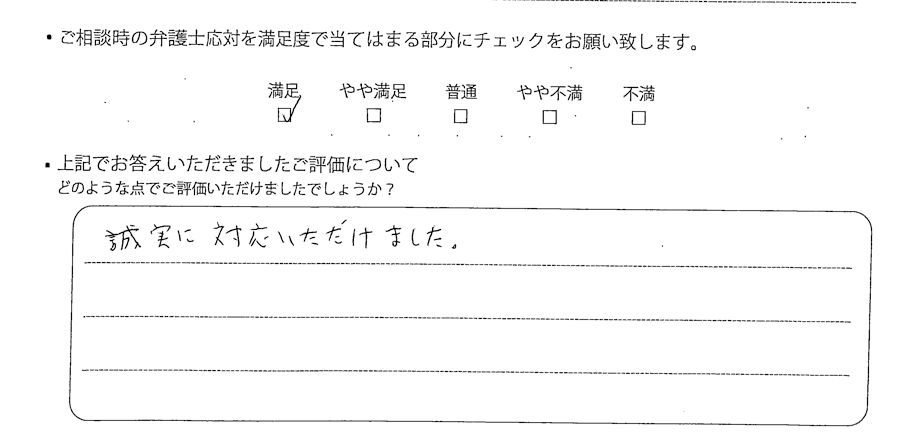 ・ご相談時の弁護士応対を満足度で当てはまる部分にチェックをお願い致します。
満足 やや満足 普通 やや不満 不満
☑ □ □ □ □
・上記でお答えいただきましたご評価について
どのような点でご評価いただけましたでしょうか？
誠実に対応いただけました。